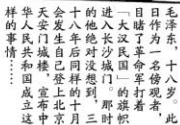 毛泽东，十八岁。此
日作为一名傍观者，
目睹了革命军打着
「大汉民国」的旗帜
进入长沙城门。那时
的他绝对没想到，三
十八年后同样的十月
会发生自己登上北京
天安门城楼，宣布中
华人民共和国成立这
样的事情……